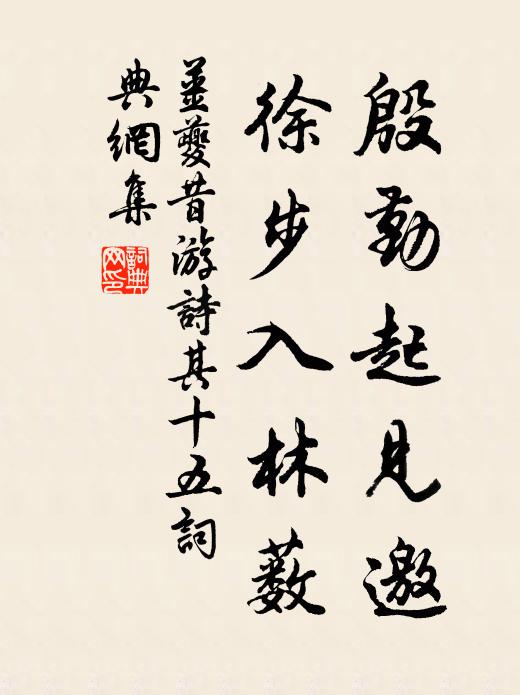 殷勤起見邀
徐步入林藪
姜夔昔游詩其十五詞
典網集
詞典網印